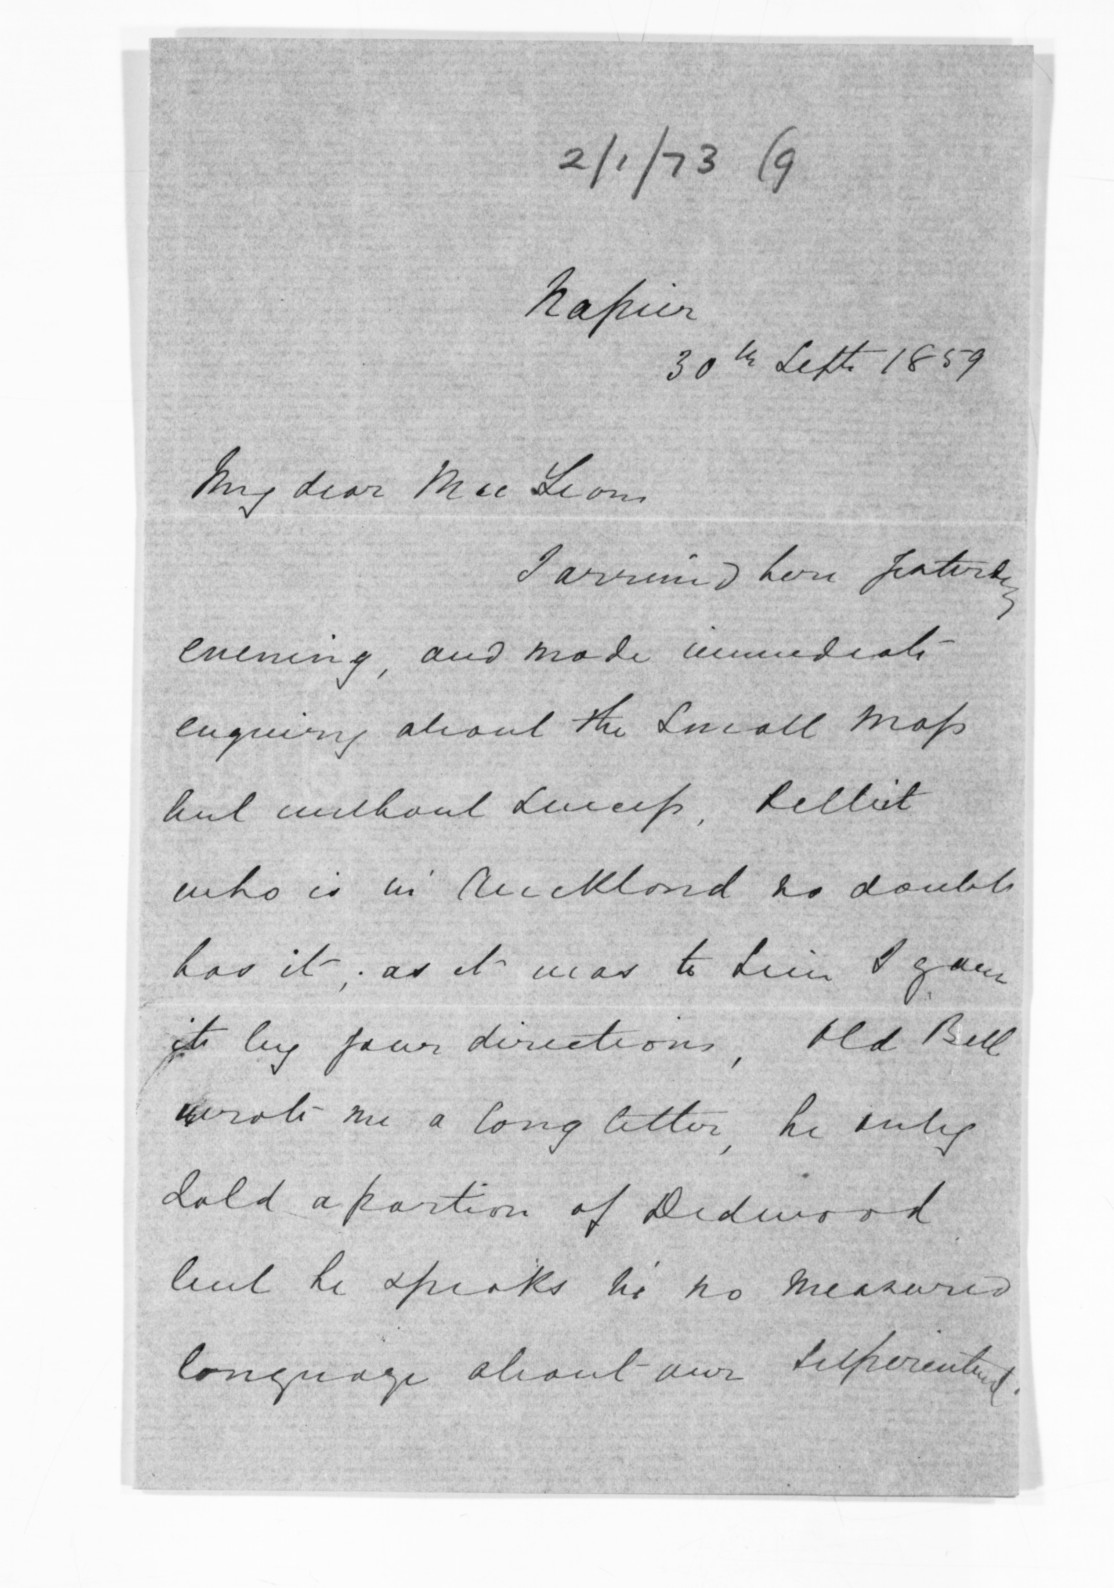 2/1/73 (9
Napier
30th Septr 1859
My dear Mac Lean
I arrived here yesterday
evening, and made immediate
enquiry about the small map
but without success,
who is in Auckland no doubt
has it, as it was to him I gave
it by your directions, Old Bell
wrote me a long letter, he only
sold a portion of Redwood
but he speaks in no measured
language about our Superintend.